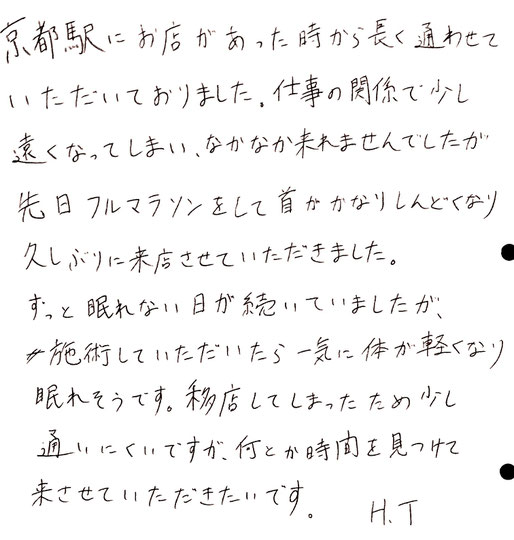 京都駅にお店があった時から長く通わせて
いただいておりました。仕事の関係で少し
遠くなってしまい、なかなか来れませんでしたが
先日フルマラソンをして首がかなりしんどくなり
久しぶりに来店させていただきました。
ずっと眠れない日が続いていましたが、
施術していただいたら一気に体が軽くなり
眠れそうです。移店してしまったため少し
通いにくいですが、何とか時間を見つけて
来させていただきたいです。
H.T